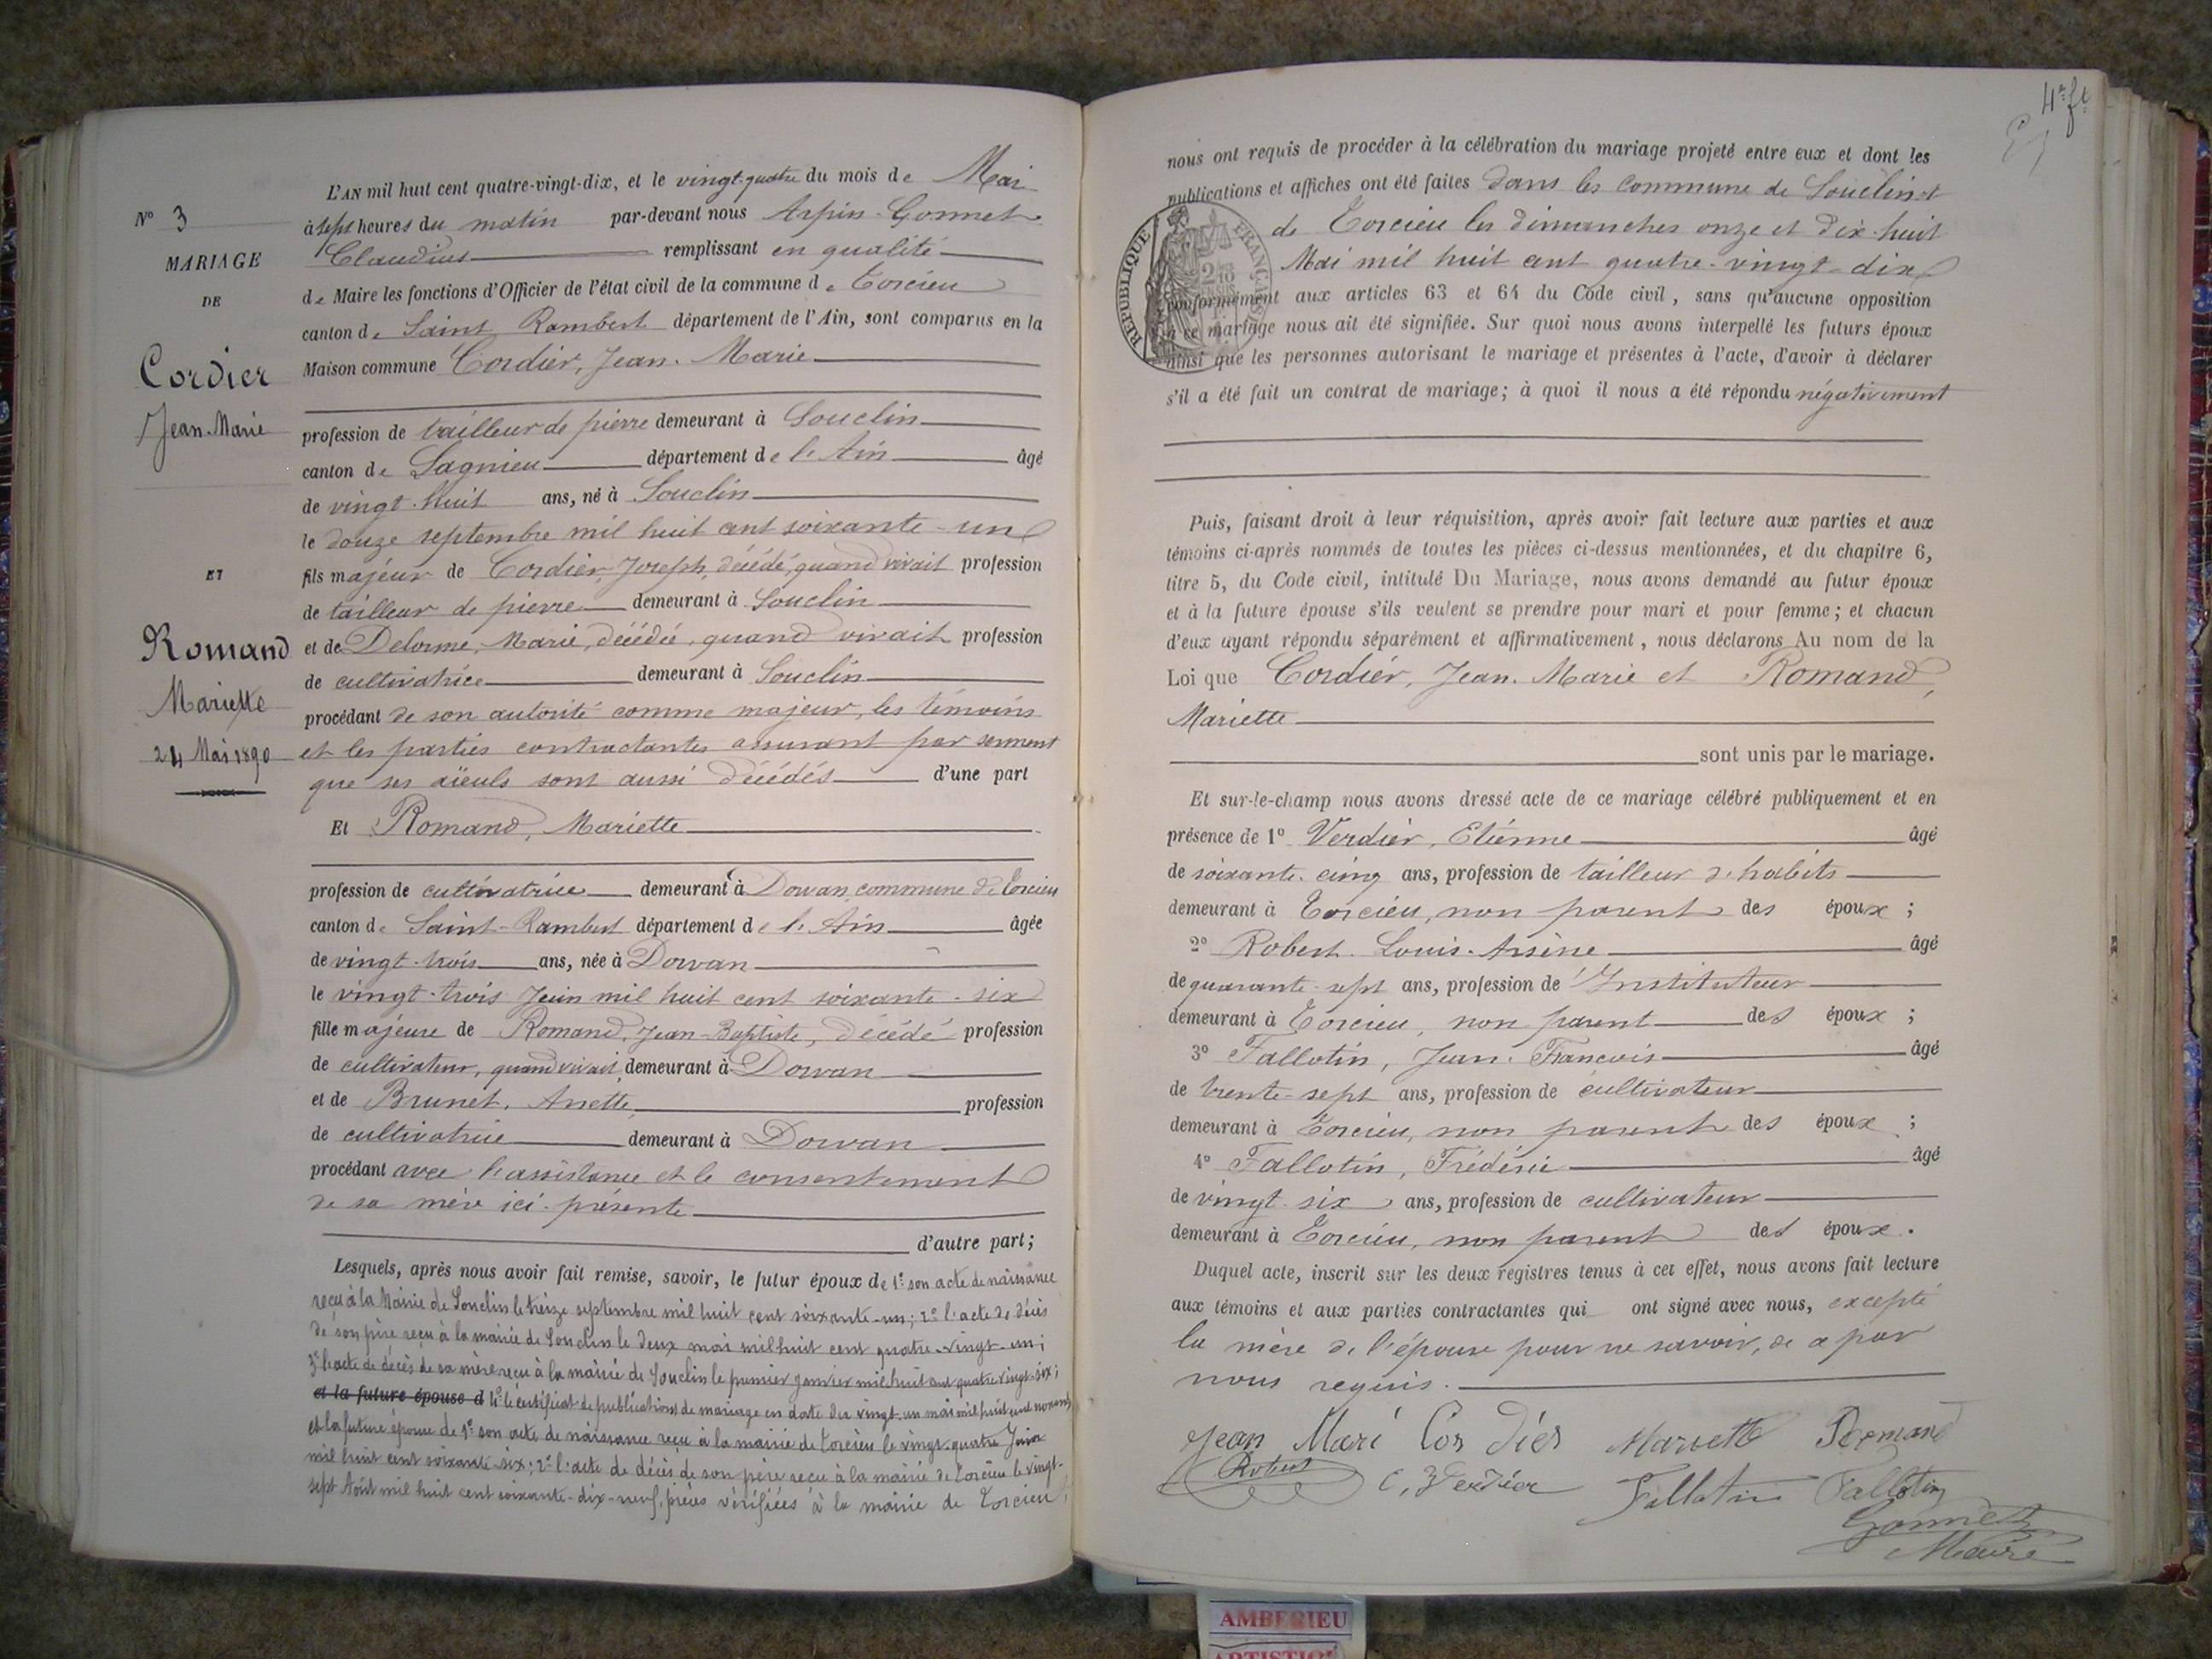 N° 3
MARIAGE
DE
Cordier
Jean-Marie
ET
Romand
Mariette
24 Mai 1890
L'AN mil huit cent quatre-vingt-dix, et le vingt-quatre du mois de Mai
à sept heures du matin par-devant nous Arpin-Gonnet
Claudius remplissant en qualité
de Maire les fonctions d'Officier de l'état civil de la commune de Torcieu
canton de Saint Rambert département de l'Ain, sont comparus en la
Maison commune Cordier, Jean-Marie
profession de tailleur de pierre demeurant à Souclin
canton de Lagnieu département de l'Ain âgé
de vingt-huit ans, né à Souclin
le douze septembre mil huit cent soixante-un
fils majeur de Cordier, Joseph, décédé, quand vivait profession
de tailleur de pierre demeurant à Souclin
et de Delorme, Marie, décédée, quand vivait profession
de cultivatrice demeurant à Souclin
procédant de son autorité comme majeur, les témoins
et les parties contractantes assurant par serment
que ses aïeuls sont aussi décédés d'une part
Et Romand, Mariette
profession de cultivatrice demeurant à Dorvan, commune de Torcieu
canton de Saint-Rambert département de l'Ain âgée
de vingt-trois ans, née à Dorvan
le vingt-trois Juin mil huit cent soixante-six
fille majeure de Romand, Jean-Baptiste, décédé profession
de cultivateur, quand vivait, demeurant à Dorvan
et de Brunet, Anette profession
de cultivatrice demeurant à Dorvan
procédant avec l'assistance et le consentement
de sa mère ici présente
d'autre part;
Lesquels, après nous avoir fait remise, savoir, le futur époux de 1° son acte de naissance
reçu à la Mairie de Souclin le treize septembre mil huit cent soixante-un; 2° l'acte de décès
de son père reçu à la mairie de Souclin le deux mai mil huit cent quatre-vingt-un;
3° l'acte de décès de sa mère reçu à la mairie de Souclin le premier janvier mil huit cent quatre vingt-six;
et la future épouse d 4° le certificat de publications de mariage en date du vingt-un mai mil huit cent nonante
et la future épouse de 1° son acte de naissance reçu à la mairie de Torcieu le vingt-quatre Juin
mil huit cent soixante-six; 2° l'acte de décès de son père reçu à la mairie de Torcieu le vingt-
sept Août mil huit cent soixante-dix-neuf, pièces vérifiées à la mairie de Torcieu,
4e ft
nous ont requis de procéder à la célébration du mariage projeté entre eux et dont les
publications et affiches ont été faites dans les commune de Souclin et
de Torcieu les dimanches onze et dix-huit
Mai mil huit cent quatre-vingt-dix
conformément aux articles 63 et 64 du Code civil, sans qu'aucune opposition
à ce mariage nous ait été signifiée. Sur quoi nous avons interpellé les futurs époux
ainsi que les personnes autorisant le mariage et présentes à l'acte, d'avoir à déclarer
s'il a été fait un contrat de mariage; à quoi il nous a été répondu négativement
RÉPUBLIQUE FRANÇAISE
Puis, faisant droit à leur réquisition, après avoir fait lecture aux parties et aux
témoins ci-après nommés de toutes les pièces ci-dessus mentionnées, et du chapitre 6,
titre 5, du Code civil, intitulé Du Mariage, nous avons demandé au futur époux
et à la future épouse s'ils veulent se prendre pour mari et pour femme; et chacun
d'eux ayant répondu séparément et affirmativement, nous déclarons Au nom de la
Loi que Cordier, Jean-Marie et Romand,
Mariette
sont unis par le mariage.
Et sur-le-champ nous avons dressé acte de ce mariage célébré publiquement et en
présence de 1° Verdier, Etienne âgé
de soixante-cinq ans, profession de tailleur d'habits
demeurant à Torcieu, non parent des époux;
2° Robert Louis-Arsène âgé
de quarante-sept ans, profession d'Instituteur
demeurant à Torcieu, non parent des époux;
3° Fallotin, Jean-François âgé
de trente-sept ans, profession de cultivateur
demeurant à Torcieu, non parent des époux;
4° Fallotin, Frédéric âgé
de vingt-six ans, profession de cultivateur
demeurant à Torcieu, non parent des époux.
Duquel acte, inscrit sur les deux registres tenus à cet effet, nous avons fait lecture
aux témoins et aux parties contractantes qui ont signé avec nous, excepté
la mère de l'épouse pour ne savoir, de a par
nous requis.
Jean Mari Cordier Mariette Romand
Robert E, Verdier Fallotin Fallotin
Gonnet
Maire
AMBERIEU
ARTISTIQUE